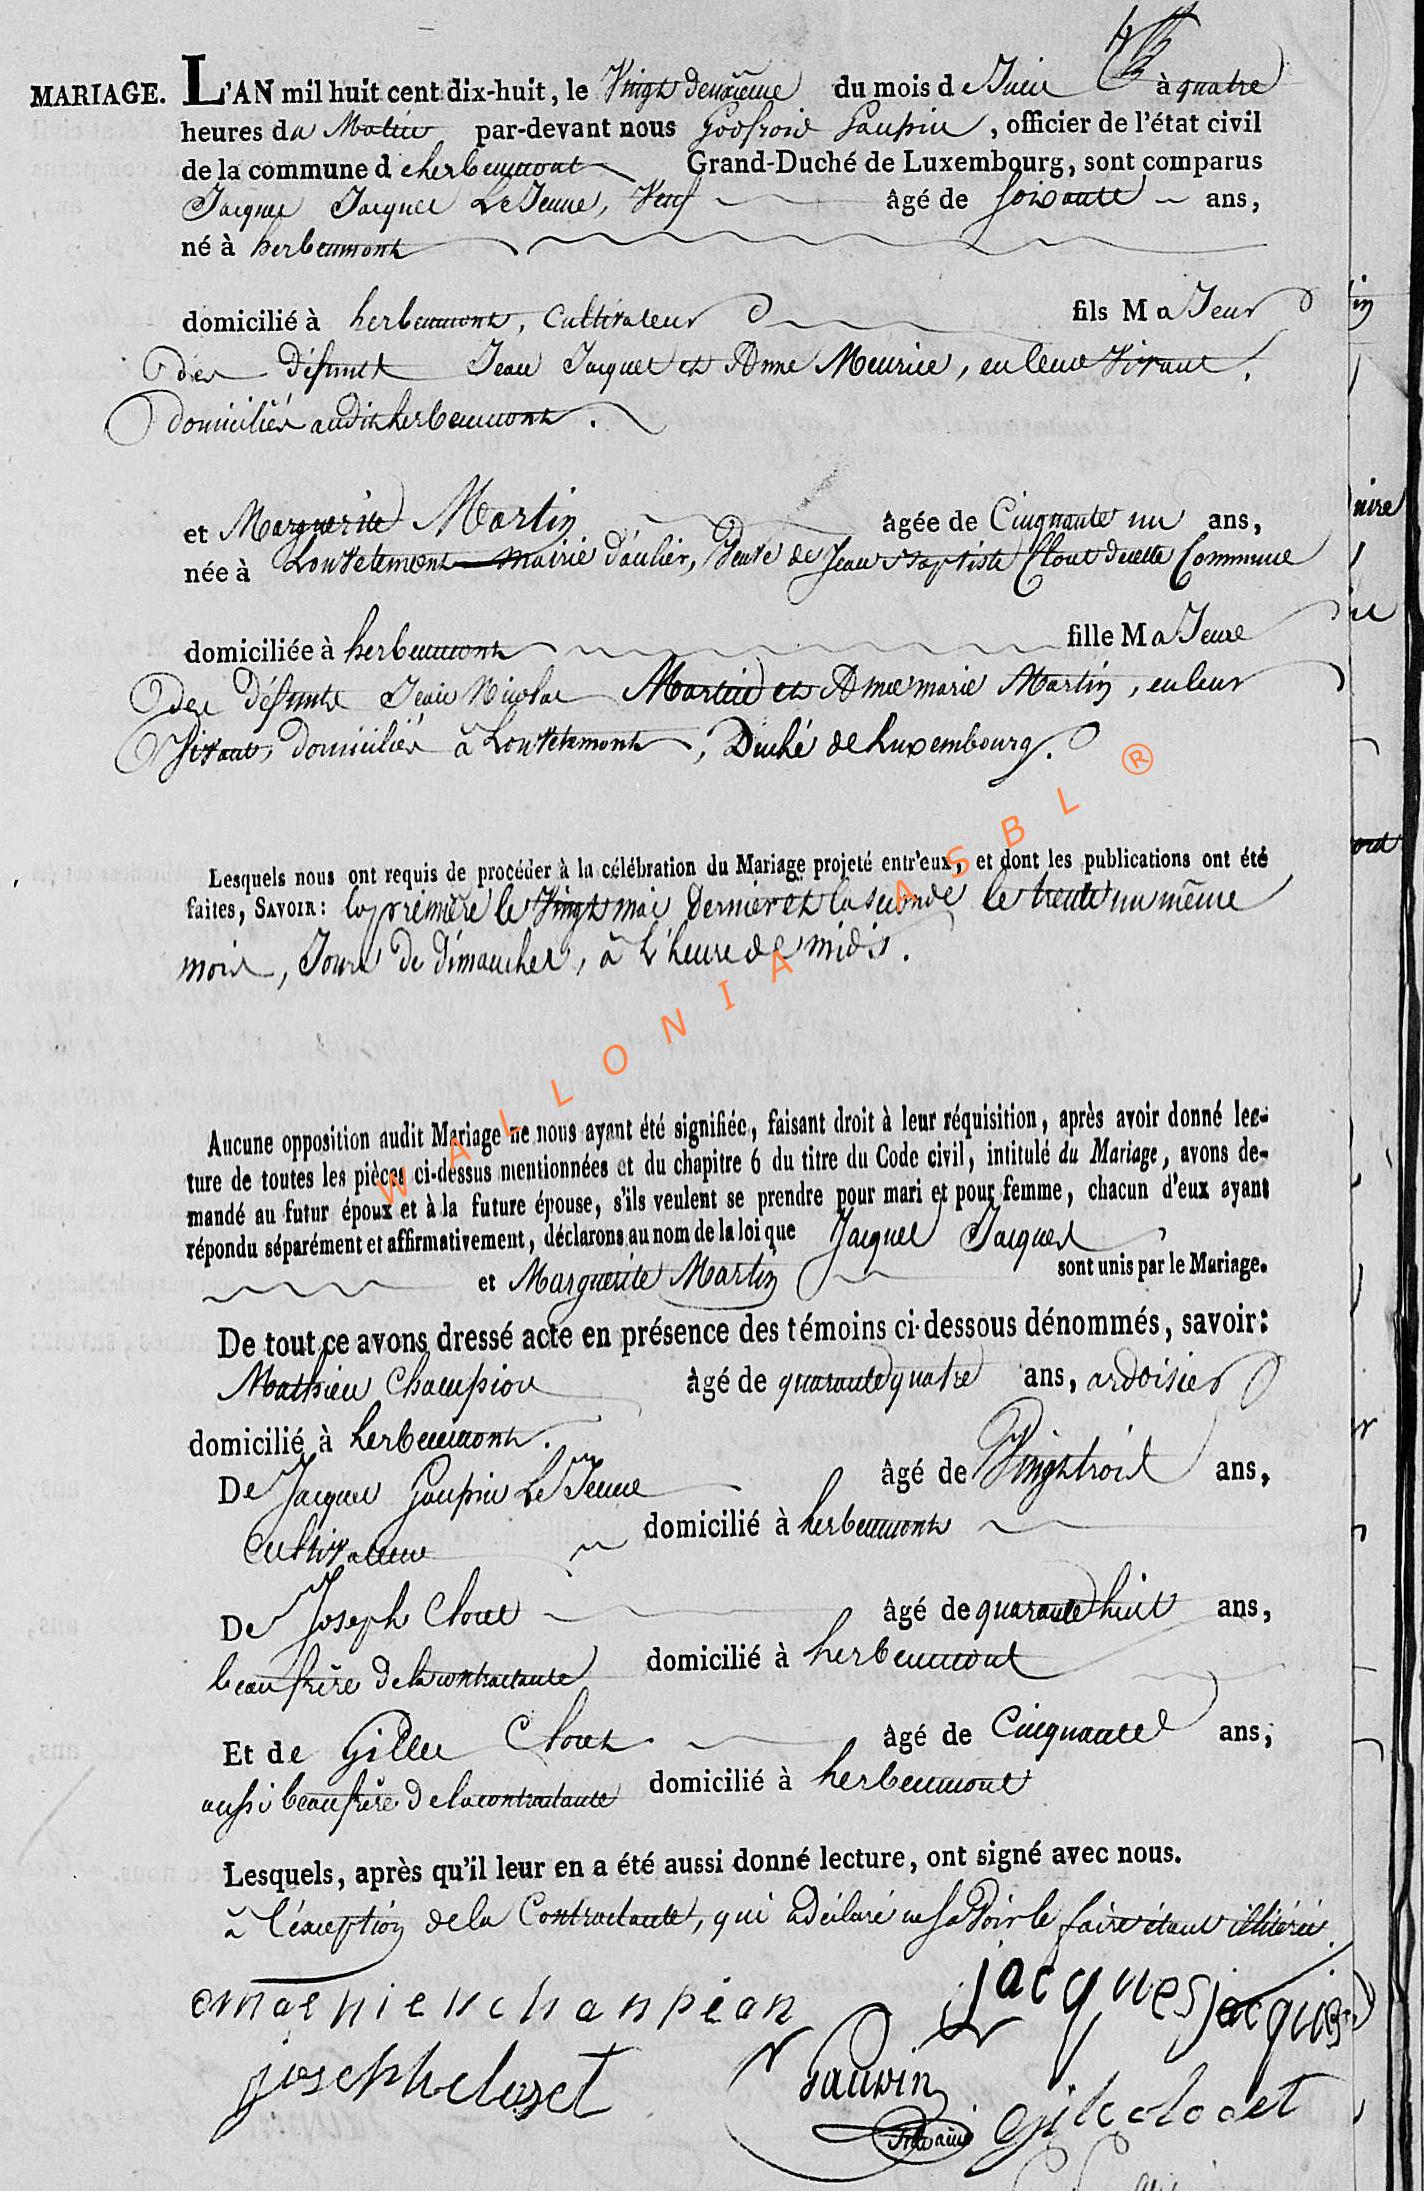 MARIAGE. L'AN mil huit cent dix-huit, le Vingt deuxième du mois d Juin à quatre
heures du Matin par-devant nous Godfroid Gaupin, officier de l'état civil
de la commune d'herbeumont Grand-Duché de Luxembourg, sont comparus
Jacques Jacques Le Jeune, Veuf âgé de soixante ans,
né à herbeumont
domicilié à herbeumont, Cultivateur fils Majeur
des défunts Jean Jacques et Anne Meurice, en leur Vivant,
domiciliés audit herbeumont.
et Marguerite Martin âgée de Cinquante un ans,
née à Louftémont mairie d'anlier, Veuve de Jean Baptiste Clouet decette Commune
domiciliée à herbeumont fille Majeure
des défunts Jean Nicolas Martin et Anne marie Martin, en leur
Vivant, domiciliés à Louftémont, Duché de Luxembourg.
Lesquels nous ont requis de procéder à la célébration du Mariage projeté entr'eux, et dont les publications ont été
faites, SAVOIR: la première le Vingt mai dernier et la seconde le trente un même
mois, Jours de dimanches, à L'heure de midi.
Aucune opposition audit Mariage ne nous ayant été signifiée, faisant droit à leur réquisition, après avoir donné lec-
ture de toutes les pièces ci-dessus mentionnées et du chapitre 6 du titre du Code civil, intitulé du Mariage, avons de-
mandé au futur époux et à la future épouse, s'ils veulent se prendre pour mari et pour femme, chacun d'eux ayant
répondu séparément et affirmativement, déclarons au nom de la loi que Jacques Jacques
et Marguerite Martin sont unis par le Mariage.
De tout ce avons dressé acte en présence des témoins ci-dessous dénommés, savoir:
Mathieu Champion âgé de quarante quatre ans, ardoisier
domicilié à herbeumont.
De Jacques Gaupin Le Jeune âgé de Vingt trois ans,
Cultivateur domicilié à herbeumont
De Joseph Clouet âgé de quarante huit ans,
beau frère de la contractante domicilié à herbeumont
Et de Gilles Clouet âgé de Cinquante ans,
aussi beau frère de la contractante domicilié à herbeumont
Lesquels, après qu'il leur en a été aussi donné lecture, ont signé avec nous.
à l'éxception de la Contractante, qui a déclaré ne savoir le faire étant illitérée.
mathieu chanpion jacques jacques
joseph clouet Gaupin gile clouet
WALLONIA ASBL ®